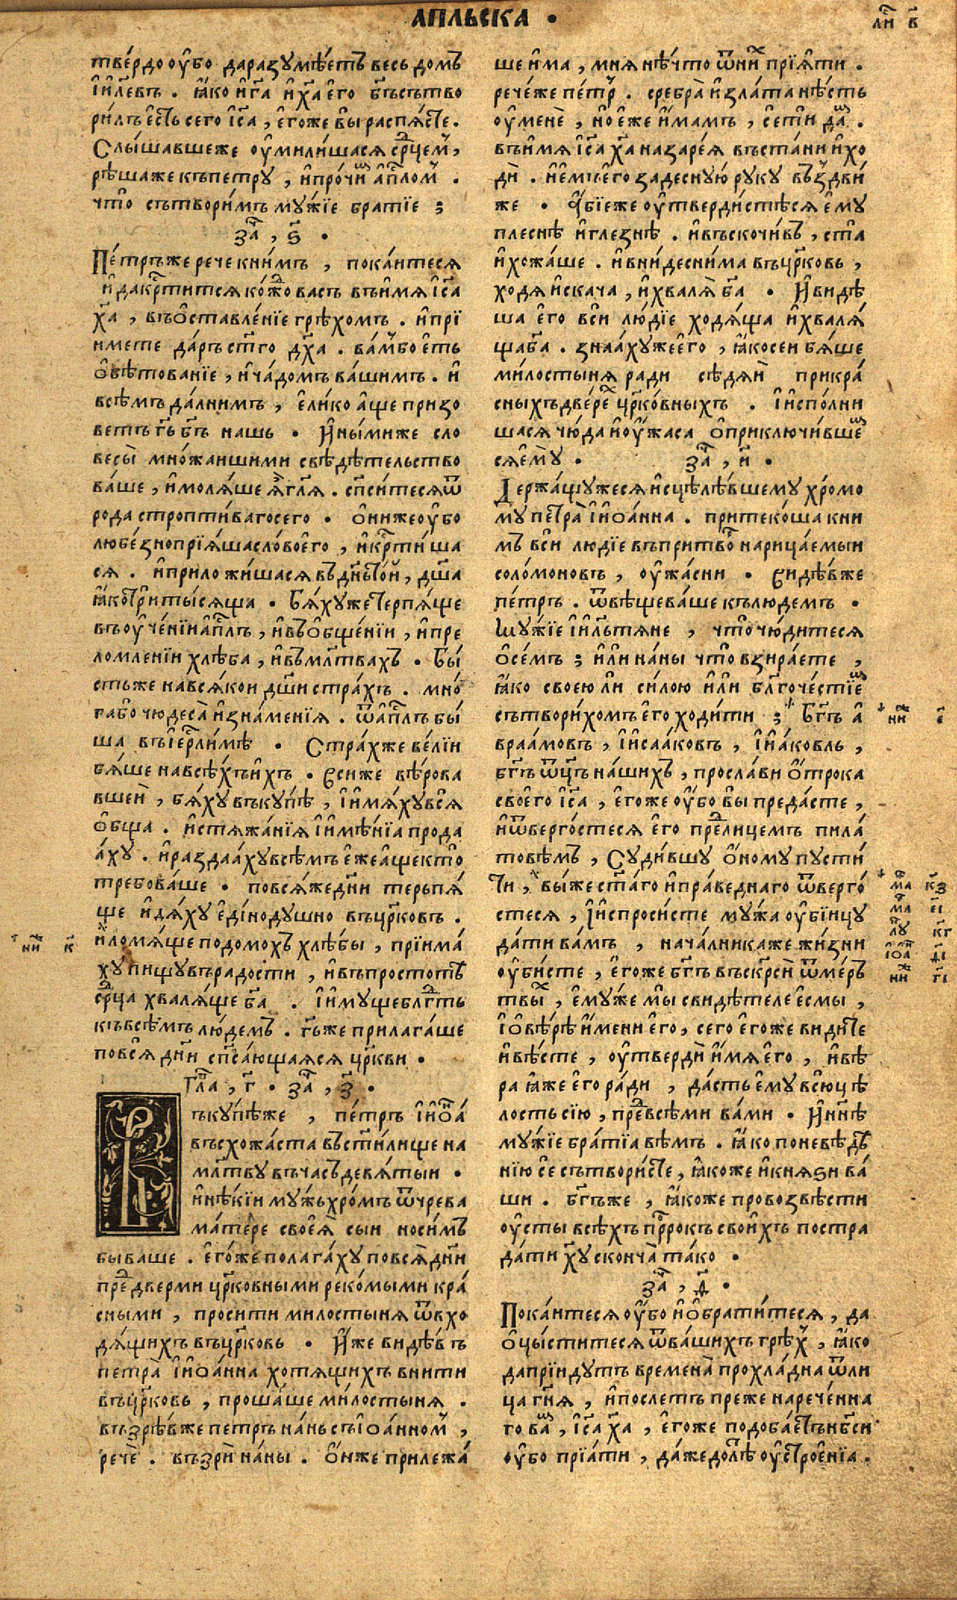 АПЛЬСКА •
ли҃ в҃
тве́рдо оу҆́бо да разꙋмѣ́етъ весь домъ
і҆и҃левъ . ꙗ҆́ко и҆ г҃а и҆ х҃а е҆го̀ б҃ъ сътво
ри́лъ е҆́сть сего і҆с҃а , е҆го́же вы распѧ́сте .
Слы́шавше же оу҆мили́шасѧ ср҃цемъ ,
рѣ́ша же къ петрꙋ , и҆ про́чи́мъ а҆п҃лом .
что̀ сътвори́мъ мꙋ́жїе братїе ;
за҃ , ѕ҃ •
Пе́тръ же рече к ни́мъ , пока́итесѧ
и҆ да кр҃титсѧ ко́ждо васъ въ и҆́мѧ і҆с҃а
х҃а , въ ѡ҆ставле́нїе грѣхомъ . и҆ прї
и́мете да́ръ ст҃го дх҃а . ва́мъ бо е҆́сть
ѡ҆бѣтованїе , и҆ ча́домъ ва́шимъ . и҆
всѣ́мъ да́лнимъ , е҆ли́ко а҆́ще призо
ветъ г҃ь б҃ъ нашь • И҆ ны́ми же сло
весы̀ мно́жаишими свѣдѣ́тельство
ва́ше , и҆ молѧ́ше ѧ҆̀ гл҃ѧ . сп҃си́тесѧ ѿ
рода стропти́ваго сего • ѻ҆ни́ же оу҆бо
любе́зно прїѧ́ша сло́во е҆го , и҆ кр҃ти́ша
сѧ . и҆ приложи́шасѧ въ дн҃ь то́и , дш҃а
ꙗ҆́ко три ты́сѧща • Бѧ́хꙋ же терпѧ́ще
въ оу҆че́нїи а҆п҃лъ , и҆ въ ѻ҆бще́нїи , и҆ пре
ломле́нїи хлѣ́ба , и҆ въ мл҃твахъ • Бы́
сть же на всѧ́кои дш҃и стра́хъ . мнѡ́
га бо чюдеса̀ и҆ зна́менїѧ . ѿ а҆п҃лъ бы́
ша въ і҆ер҃ли́мѣ • Стра́х же ве́лїи
бѧ́ше на всѣ́хъ и҆́хъ • Вси́ же вѣ́рова
вшеи̑ , бѧ́хꙋ въ кꙋ́пѣ , і҆ и҆мѧ́хꙋ всѧ̀
ѻ҆́бща . и҆ стѧжа́нїѧ і҆ и҆мѣ́нїѧ прода
а́хꙋ . и҆ раздаа́хꙋ всѣ́мъ е҆́же а҆́ще кто̀
требова́ше • повсѧ́же дн҃и терьпѧ́
ще и҆ дѧ́хꙋ е҆ди́нодꙋшно въ цр҃ковъ .
и҆ ломѧ́ще по домо́хъ хлѣ́бы , прїима́
хꙋ пи́щꙋ въ ра́дости , и҆ въ простотѣ
ср҃ца хвалѧ́ще б҃а . і҆ и҆мꙋще бл҃гть
къ всѣ́мъ лю́демъ . г҃ь же прилага́ше
по всѧ̀ дн҃и сп҃са́ющаѧсѧ цр҃кви •
гла҃ , г҃ • за҃ , з҃ •
Въ кꙋ́пѣ же , пе́тръ і҆ и҆ѡ҃а
въсхожа́ста въ ст҃и́лище на
мл҃твꙋ въ часъ девѧ́тыи •
и҆ нѣ́кїи мꙋ́жь хро́мъ ѿ чрева
ма́тере своеѧ̀ сы́и носи́мъ
быва́ше . е҆го́же полага́хꙋ по всѧ̀ дн҃и
пред две́рми цр҃ко́вными реко́мыми кра́
сными , просити милостынѧ ѿ вхо
дѧ́щихъ въ цр҃ковь • И҆́же видѣ́въ
петра̀ і҆ и҆ѡа́нна хотѧ́щихъ внити
въ цр҃ковь , проша́ше ми́лостынѧ .
възрѣ́в же петръ на́нь съ і҆ѡа́нном ,
рече̏ . въ́зри на́ны . ѻ҆́нже прилежа́
ше и҆́ма , мнѧ́ нѣ́что ѿ ни́хъ прїѧ́ти .
рече́же пе́тръ . сребра̀ и҆ зла́та нѣ́сть
оу҆ менѐ , но е҆́же и҆́мамъ , се тѝ да́ю .
въ и҆́мѧ і҆с҃а х҃а назаре́ѧ въста́ни и҆ хо
дѝ . и҆ е҆́мъ е҆го за деснꙋ́ю рꙋкꙋ въздви́
же • а҆́бїе же оу҆тверди́стѣсѧ е҆мꙋ
плеснѣ̀ и҆ глезнѣ̀ . и҆ въскочи́въ , ста̀
и҆ хожа́ше . и҆ вни́де с ни́ма въ цр҃ковь ,
ходѧ̀ и҆ скача , и҆ хвалѧ̀ б҃а • И҆ видѣ́
ша е҆го всѝ лю́дїе ходѧ́ща и҆ хвалѧ́
ща б҃а . знаа́хꙋ же е҆го , ꙗ҆́ко сеи бѧ́ше
ми́лостынѧ ра́ди сѣдѧ́и при кра́
сныхъ две́рех цр҃ко́вныхъ . І҆ и҆спо́лни
шасѧ чю́да и҆ оу҆́жаса ѻ҆ приключи́вшем
сѧ е҆мꙋ • за҃ , и҃ •
Держа́щꙋ жесѧ и҆сцѣлѣ́вшемꙋ хро́мо
мꙋ петра̀ і҆ и҆ѡа́нна . притеко́ша к ни
мъ всѝ лю́дїе въ притво́р нарица́емыи
соло́моновъ , оу҆жа́сни • Видѣ́в же
пе́тръ . ѿвѣщева́ше къ людемъ •
Мꙋ́жїе і҆и҃лътѧне , что̀ чю́дитесѧ
ѻ҆ се́мъ ; и҆лѝ на́ны что̀ взира́ете ,
ꙗ҆́ко своею ли си́лою и҆лѝ бл҃гоче́стїем
сътвори́хомъ е҆го ходи́ти ; Б҃гъ а҆
враа́мовъ , і҆ и҆саа́ковъ , і҆ и҆а́ковль ,
б҃гъ ѿц҃ъ на́шихъ , просла́ви ѻ҆́трока
своего і҆с҃а , е҆го́же оу҆́бо вы преда́сте ,
и҆ ѿверго́стесѧ е҆го пред лице́мъ пила́
товѣмъ , Сꙋди́вшꙋ ѻ҆́номꙋ пꙋсти́
ти , вы́ же ст҃а́го и҆ пра́веднаго ѿверго́
стесѧ , і҆ и҆спроси́сте мꙋ́жа оу҆бі́ицꙋ
да́ти ва́мъ , нача́лника же жи́зни
оу҆би́сте , е҆го́же б҃гъ въскр҃сѝ ѿ ме́ръ
твы́х , е҆мꙋ́же мы̀ свидѣ́теле е҆смы̀ ,
і҆ ѡ҆ вѣ́рѣ и҆́мени е҆го̀ , сего е҆го́же види́те
и҆ вѣ́сте , оу҆твердѝ и҆́мѧ е҆го , и҆ вѣ́
ра ꙗ҆́же е҆го ра́ди , да́сть е҆мꙋ̀ всю̀ цѣ
лость сїю̀ , пред всѣми ва́ми • И҆ нн҃ѣ
мꙋ́жїе бра́тїа вѣ́мъ . ꙗ҆́ко по невѣ́дѣ
нїю се̏ сътвори́сте , ꙗ҆́коже и҆ кнѧѕи ва́
ши . б҃гъ же , ꙗ҆́коже провозвѣсти
оу҆сты всѣ́хъ пр҃рокъ свои́хъ постра
да́ти х҃ꙋ сконча̀ та́ко •
за҃ , ѳ҃ •
Пока́итесѧ оу҆́бо и҆ ѻ҆брати́тесѧ , да
ѻ҆чы́ститесѧ ѿ ва́шихъ грѣ́х , ꙗ҆́ко
да прїи́дꙋтъ времена̀ прохла́дна ѿ ли
ца г҃нѧ , и҆ послетъ преже нарече́нна
го ва́м , і҆с҃а х҃а , е҆го́же подоба́етъ нб҃си
оу҆́бо прїа́ти , да́же до лѣ́т оу҆строе́нїа .